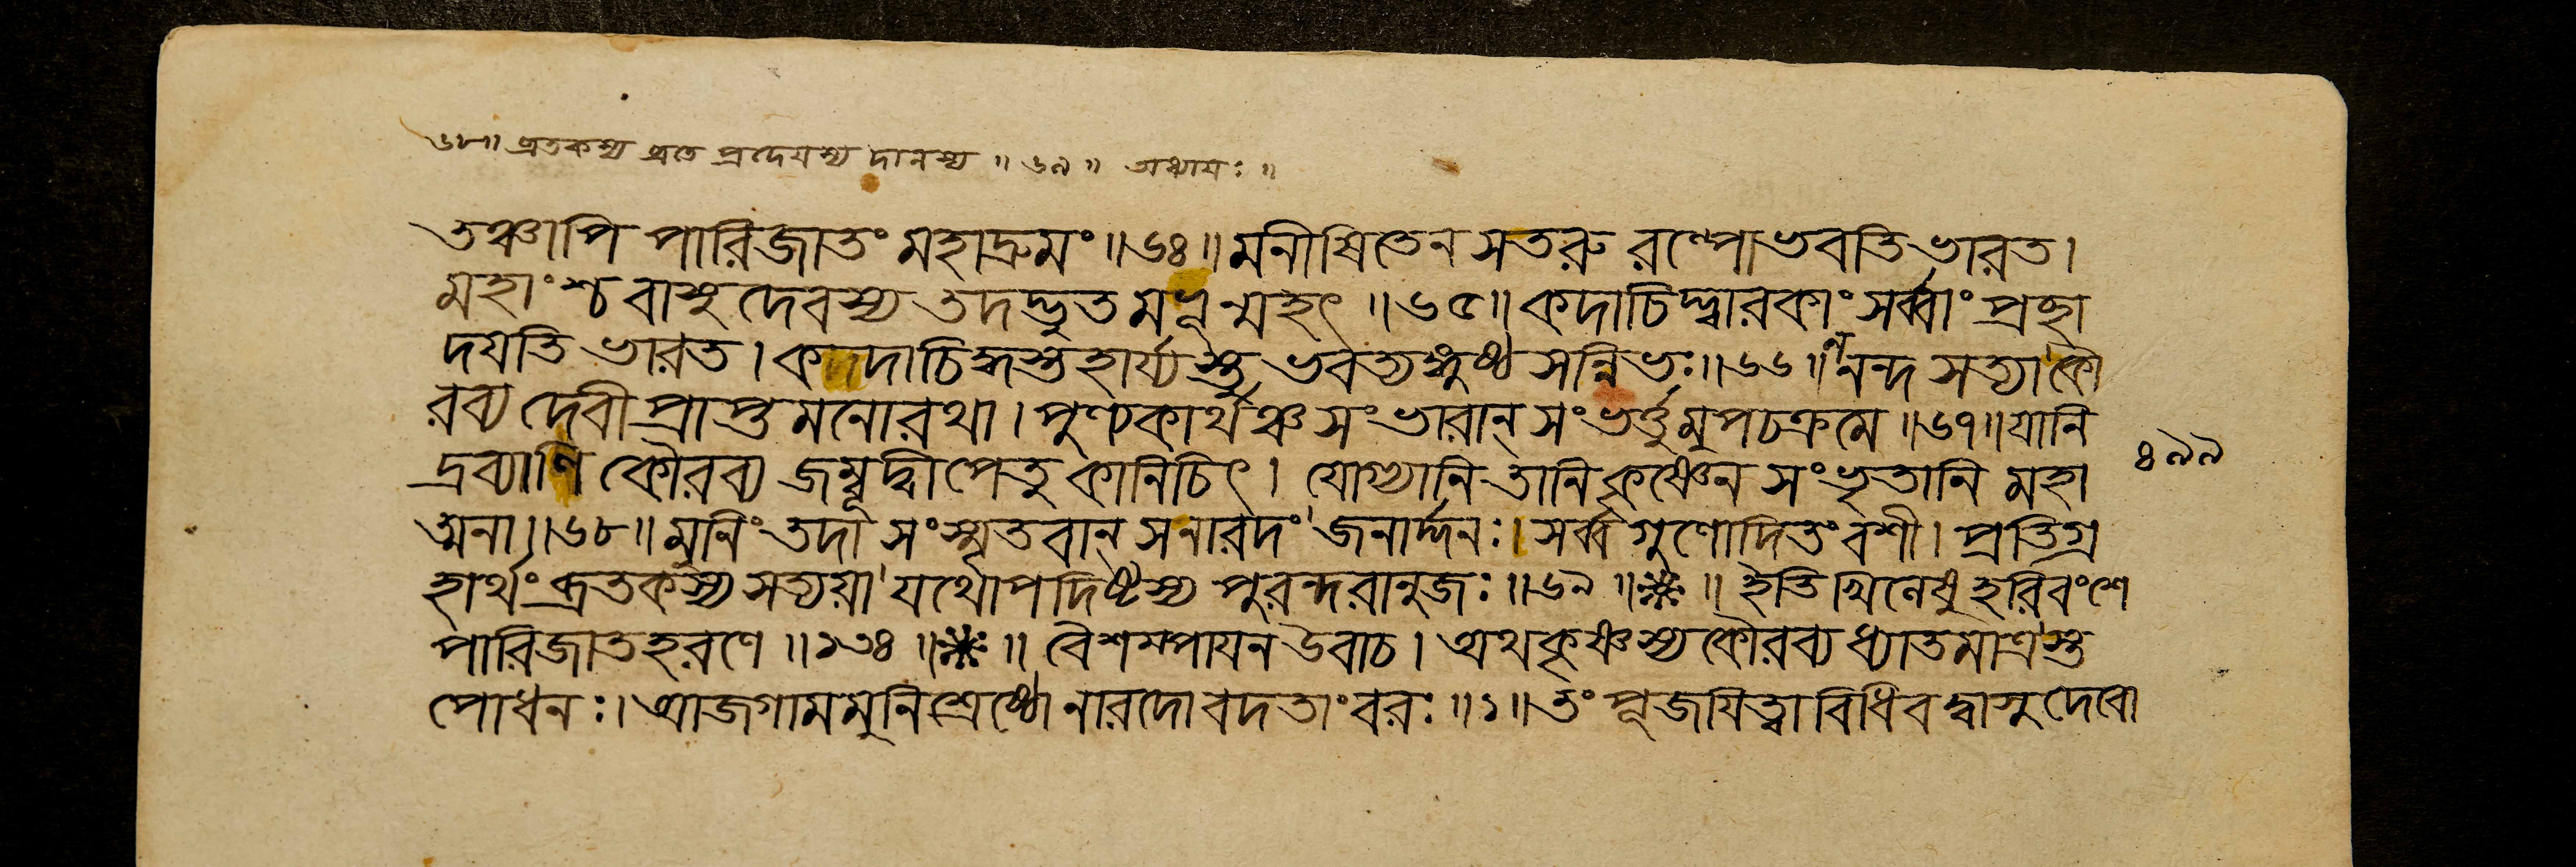 ৬৮॥ ব্রতকস্য ব্রতে প্রদেয়স্য দানস্য ॥ ৬৯ ॥ অধ্যায়ঃ ॥
তঞ্চাপি পারিজাতং মহাদ্রুমং ॥৬৪॥ মনীষিতেন সতরু রল্পো ভবতি ভারত।
মহাংশ্চ বাসুদেবস্য তদদ্ভুত মভূন্মহৎ ॥৬৫॥ কদাচিদ্দ্বারকাং সর্ব্বাং প্রচ্ছা
দয়তি ভারত। কদাচিদ্ধস্তহার্য্যস্তু ভবত্যঙ্গুষ্ঠ সন্নিভঃ॥৬৬॥ ননন্দ সত্যা কৌ
রব্য দেবী প্রাপ্ত মনোরথা। পুণ্যকার্থঞ্চ সংভারান্ সংভর্ত্তুমুপচক্রমে ॥৬৭॥ যানি
দ্রব্যাণি কৌরব্য জম্বূদ্বীপেতু কানিচিৎ। যোগ্যানি তানি কৃষ্ণেন সংভৃতানি মহা
ত্মনা॥৬৮॥ মুনিং তদা সংস্মৃতবান্ সনারদং জনার্দ্দনঃ। সর্ব্বগুণোদিতং বশী। প্রতিগ্র
হার্থং ব্রতকস্য সত্যয়া যথোপদিষ্টস্য পুরন্দরানুজঃ ॥৬৯॥ ॥ ইতি খিলেষু হরিবংশে
পারিজাতহরণে ॥১৩৪॥ ॥ বৈশম্পায়ন উবাচ। অথ কৃষ্ণস্য কৌরব্য ধ্যাতমাত্রস্ত
পোধনঃ। আজগাম মুনিশ্রেষ্ঠো নারদো বদতাং বরঃ ॥১॥ তং পূজয়িত্বা বিধিবদ্বাসুদেবো
৪৯৯